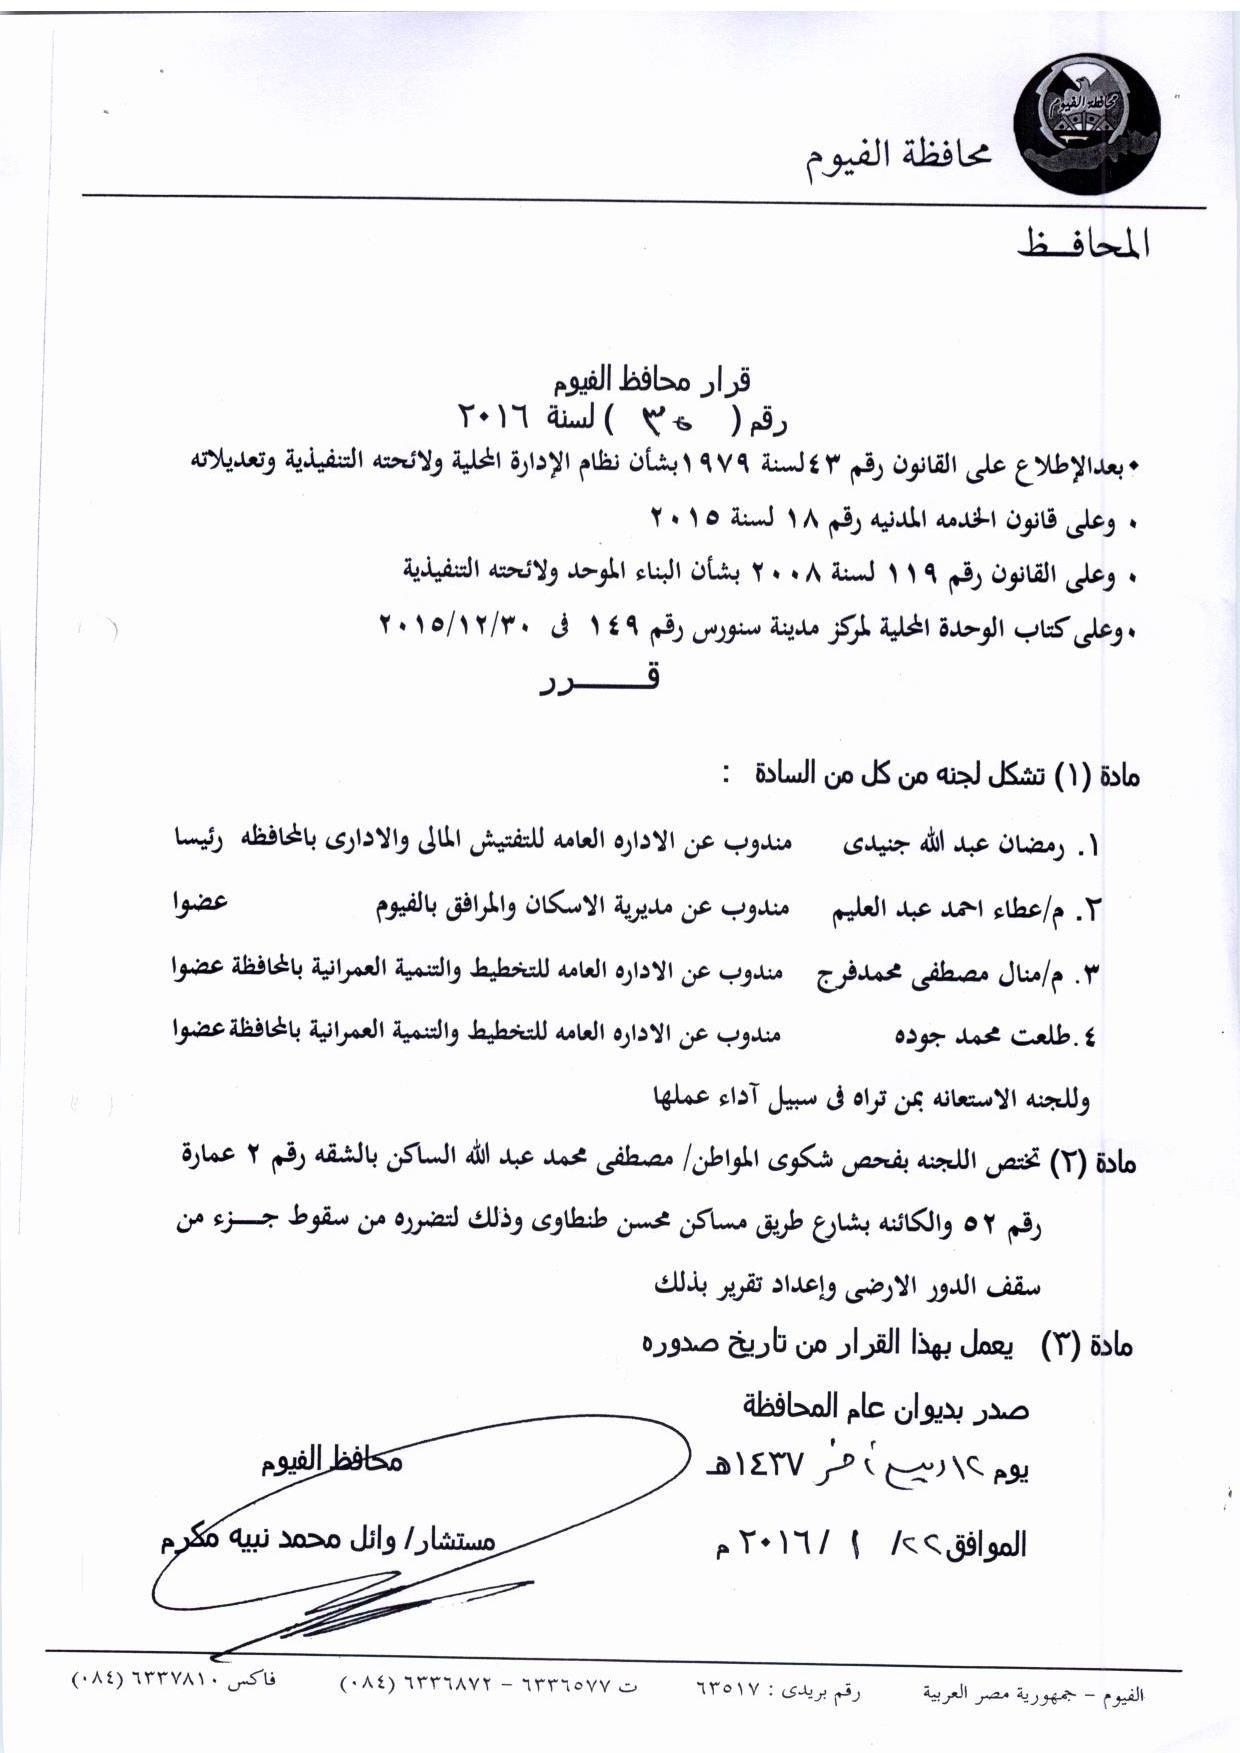 محافظة الفيوم
محافظة الفيوم
المحافــظ
قرار محافظ الفيوم
رقم ( ٣٥ ) لسنة ٢٠١٦
• بعدالإطلاع على القانون رقم ٤٣ لسنة ١٩٧٩ بشأن نظام الإدارة المحلية ولائحته التنفيذية وتعديلاته
• وعلى قانون الخدمه المدنيه رقم ١٨ لسنة ٢٠١٥
• وعلى القانون رقم ١١٩ لسنة ٢٠٠٨ بشأن البناء الموحد ولائحته التنفيذية
• وعلى كتاب الوحدة المحلية لمركز مدينة سنورس رقم ١٤٩ فى ٢٠١٥/١٢/٣٠
قـــــرر
مادة (١) تشكل لجنه من كل من السادة :
١. رمضان عبد الله جنيدى مندوب عن الاداره العامه للتفتيش المالى والادارى بالمحافظه رئيسا
٢. م/عطاء احمد عبد العليم مندوب عن مديرية الاسكان والمرافق بالفيوم عضوا
٣. م/منال مصطفى محمدفرج مندوب عن الاداره العامه للتخطيط والتنمية العمرانية بالمحافظة عضوا
٤.طلعت محمد جوده مندوب عن الاداره العامه للتخطيط والتنمية العمرانية بالمحافظة عضوا
وللجنه الاستعانه بمن تراه فى سبيل آداء عملها
مادة (٢) تختص اللجنه بفحص شكوى المواطن/ مصطفى محمد عبد الله الساكن بالشقه رقم ٢ عمارة
رقم ٥٢ والكائنه بشارع طريق مساكن محسن طنطاوى وذلك لتضرره من سقوط جـــزء من
سقف الدور الارضى وإعداد تقرير بذلك
مادة (٣) يعمل بهذا القرار من تاريخ صدوره
صدر بديوان عام المحافظة
يوم ١٢ ربيع آخر ١٤٣٧هـ
محافظ الفيوم
الموافق ٢٢/ ١ /٢٠١٦ م
مستشار/ وائل محمد نبيه مكرم
الفيوم – جمهورية مصر العربية رقم بريدى : ٦٣٥١٧ ت ٦٣٣٦٥٧٧ – ٦٣٣٦٨٧٢ (٠٨٤) فاكس ٦٣٣٧٨١٠ (٠٨٤)